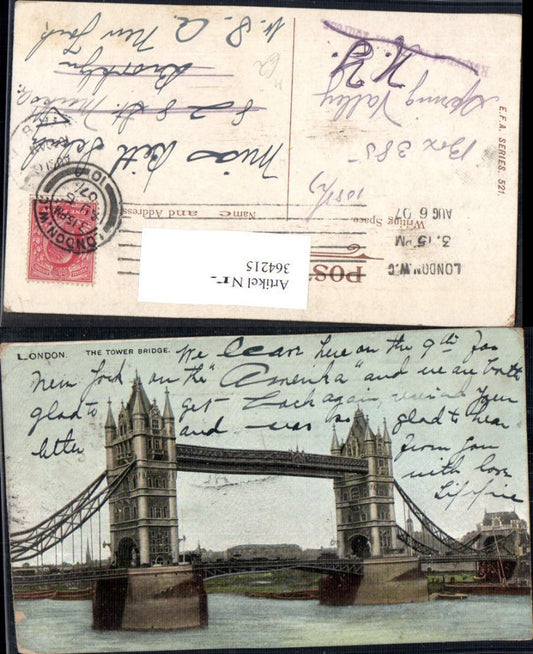 Miss Seif
828 St.
Brooklyn
New York
U. S. A
Box 385
Spring Valley
N.Y.
E.F.A. SERIES. 521.
Writing Space
Name and Address
LONDON.W.C
3.15 PM
AUG 6 07
LONDON.W.C
3.15PM
AU 6
07
10
POST
Artikel Nr.-
364215
LONDON. THE TOWER BRIDGE.
We leave here on the 9th for
New York on the "Amerika" and we are both
glad to get back again, received your
letter and was so glad to hear
from you
with love